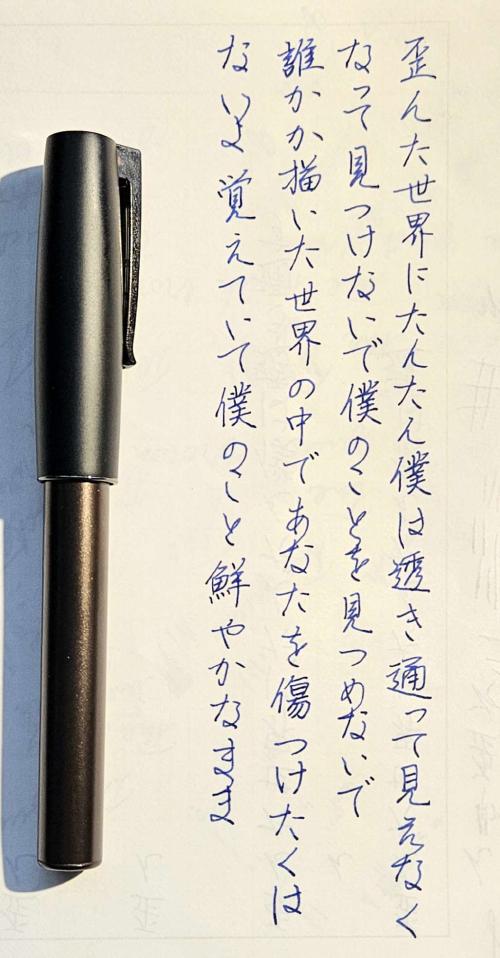 歪んた世界にたんたん僕は透き通って見えなく
なって見つけないで僕のことを見つめないで
誰かか描いた世界の中であなたを傷つけたくは
ないよ覚えていて僕のこと鮮やかなまま